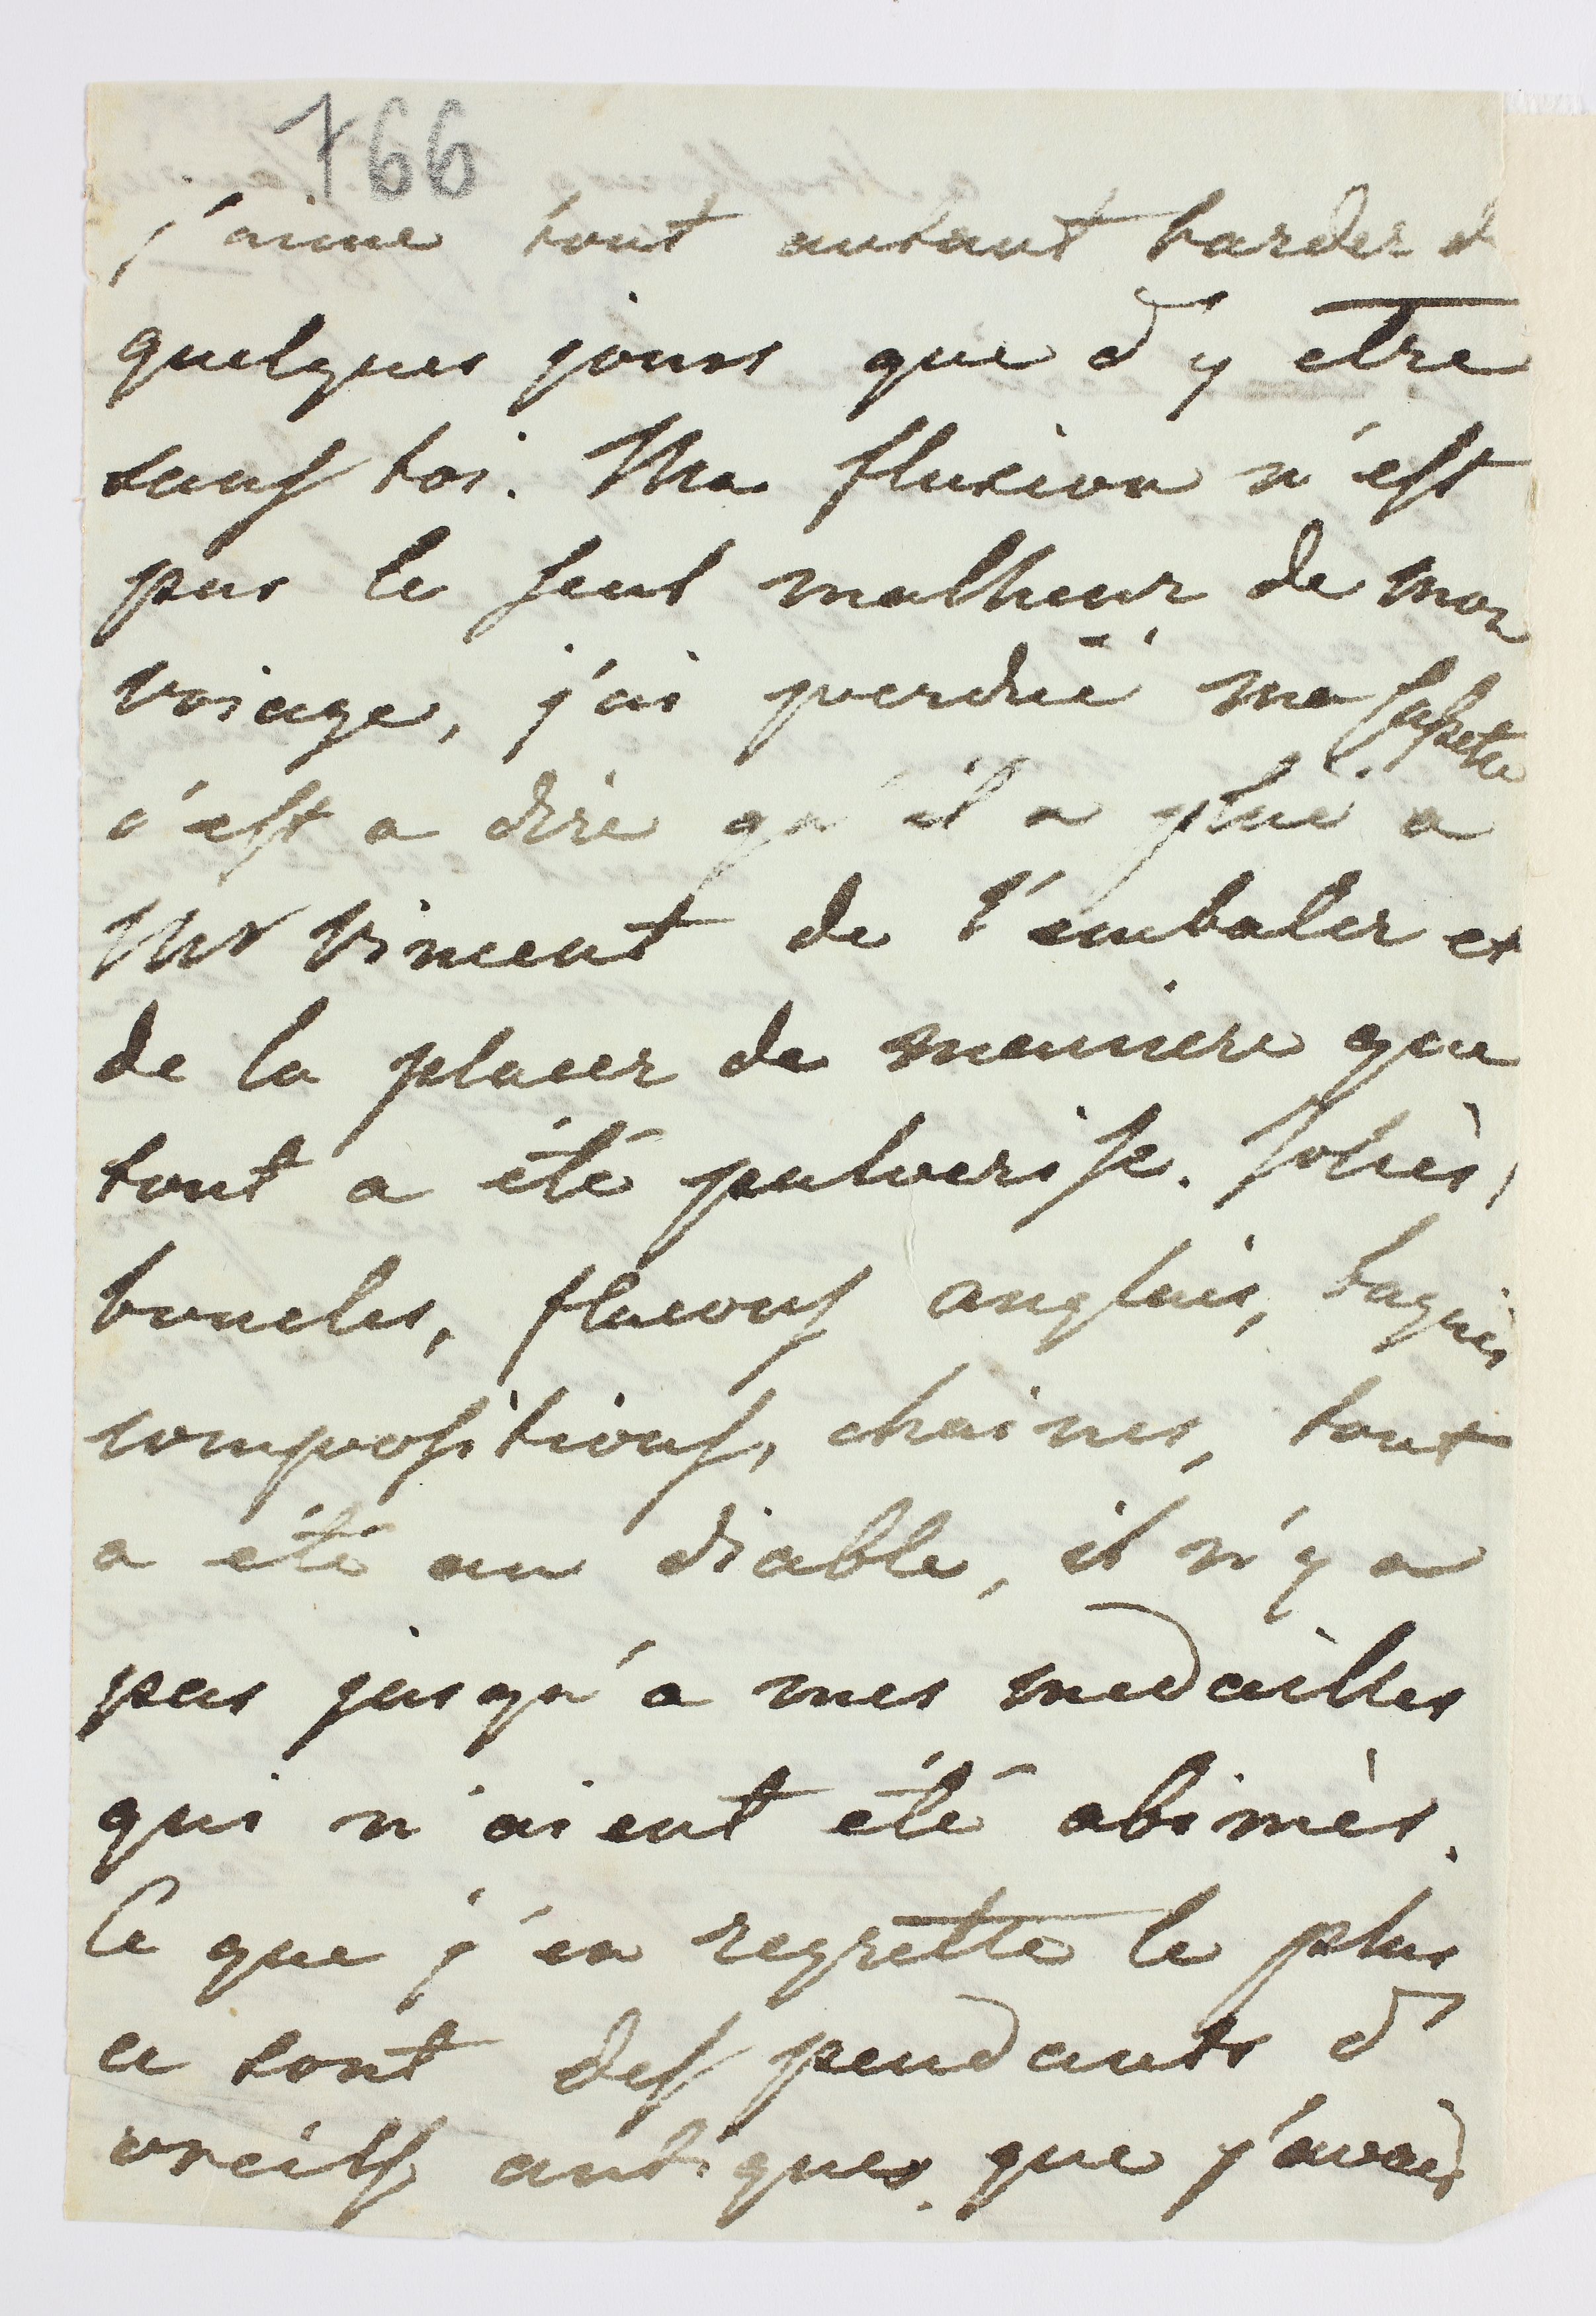 766
j'aime tout autant tarder d
quelques jours que d'y etre
sans toi. Ma fluxion n'est
pas le seul malheur de mon
voiage, j'ai perdüe ma
c'est a dire qu'il a plué a
Mr Vincent de l'embaler et
de la placer de maniere que
tout a été pulverise. Joliès,
boucles, flacons anglais, baguès
compositions, chaines, tout
a été au diable, il n'y a
pas jusqu'a mes medailles
qui n'aient été abimès.
Ce que j'en regrette le plus
ce sont des pendants d'
oreills antiques que j'avais